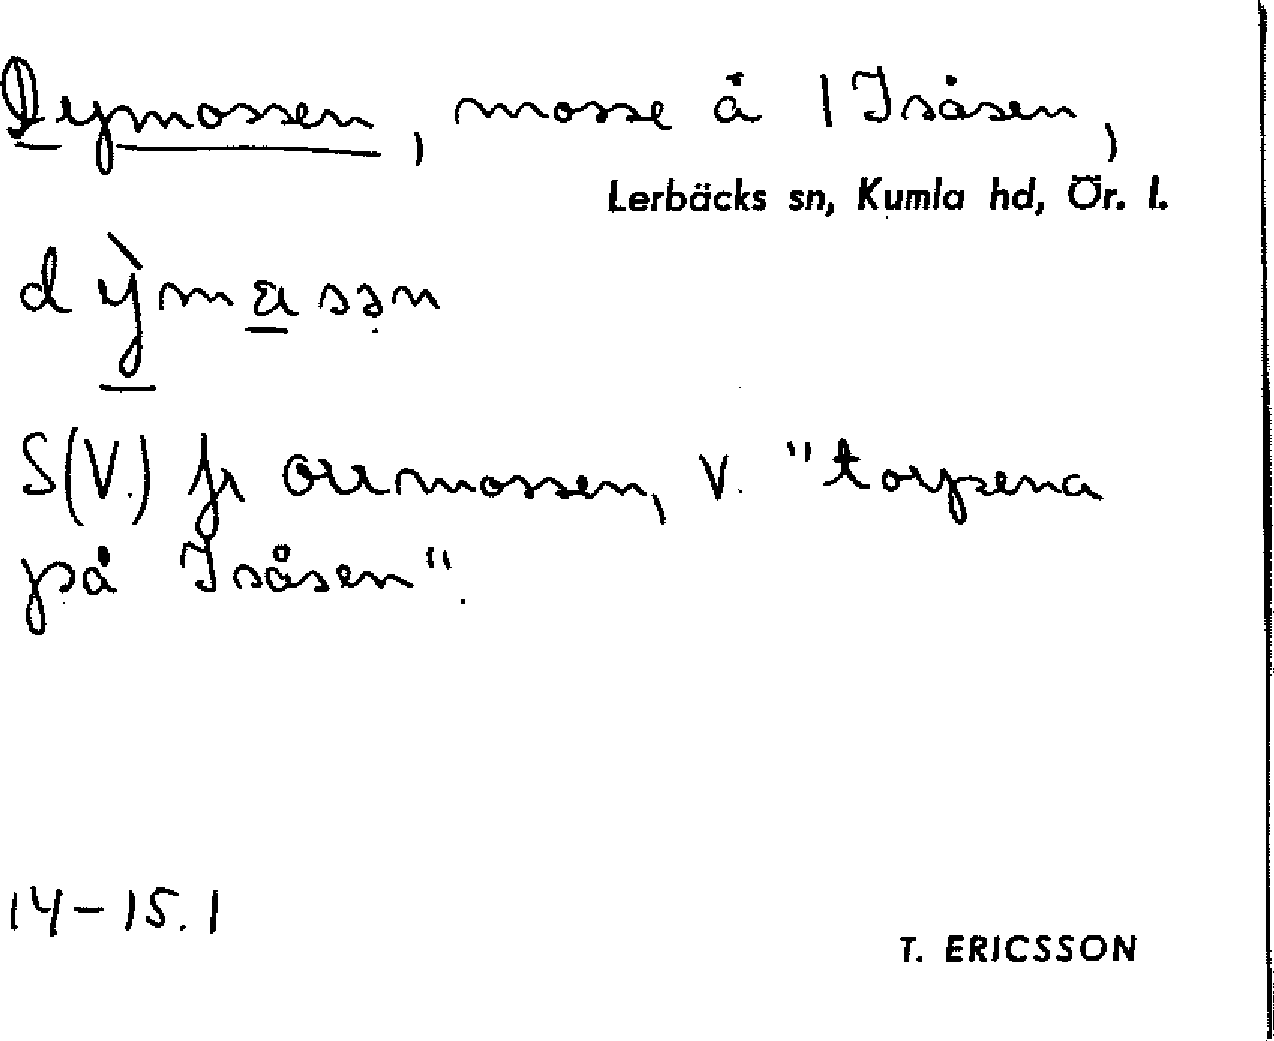 Dymossen, mosse å 1 Isåsen,
Lerbäcks sn, Kumla hd, Ör. l.
dỳmasən
S(V.) fr Orrmossen, V. "torpena
på Isåsen".
14-15.1
T. ERICSSON